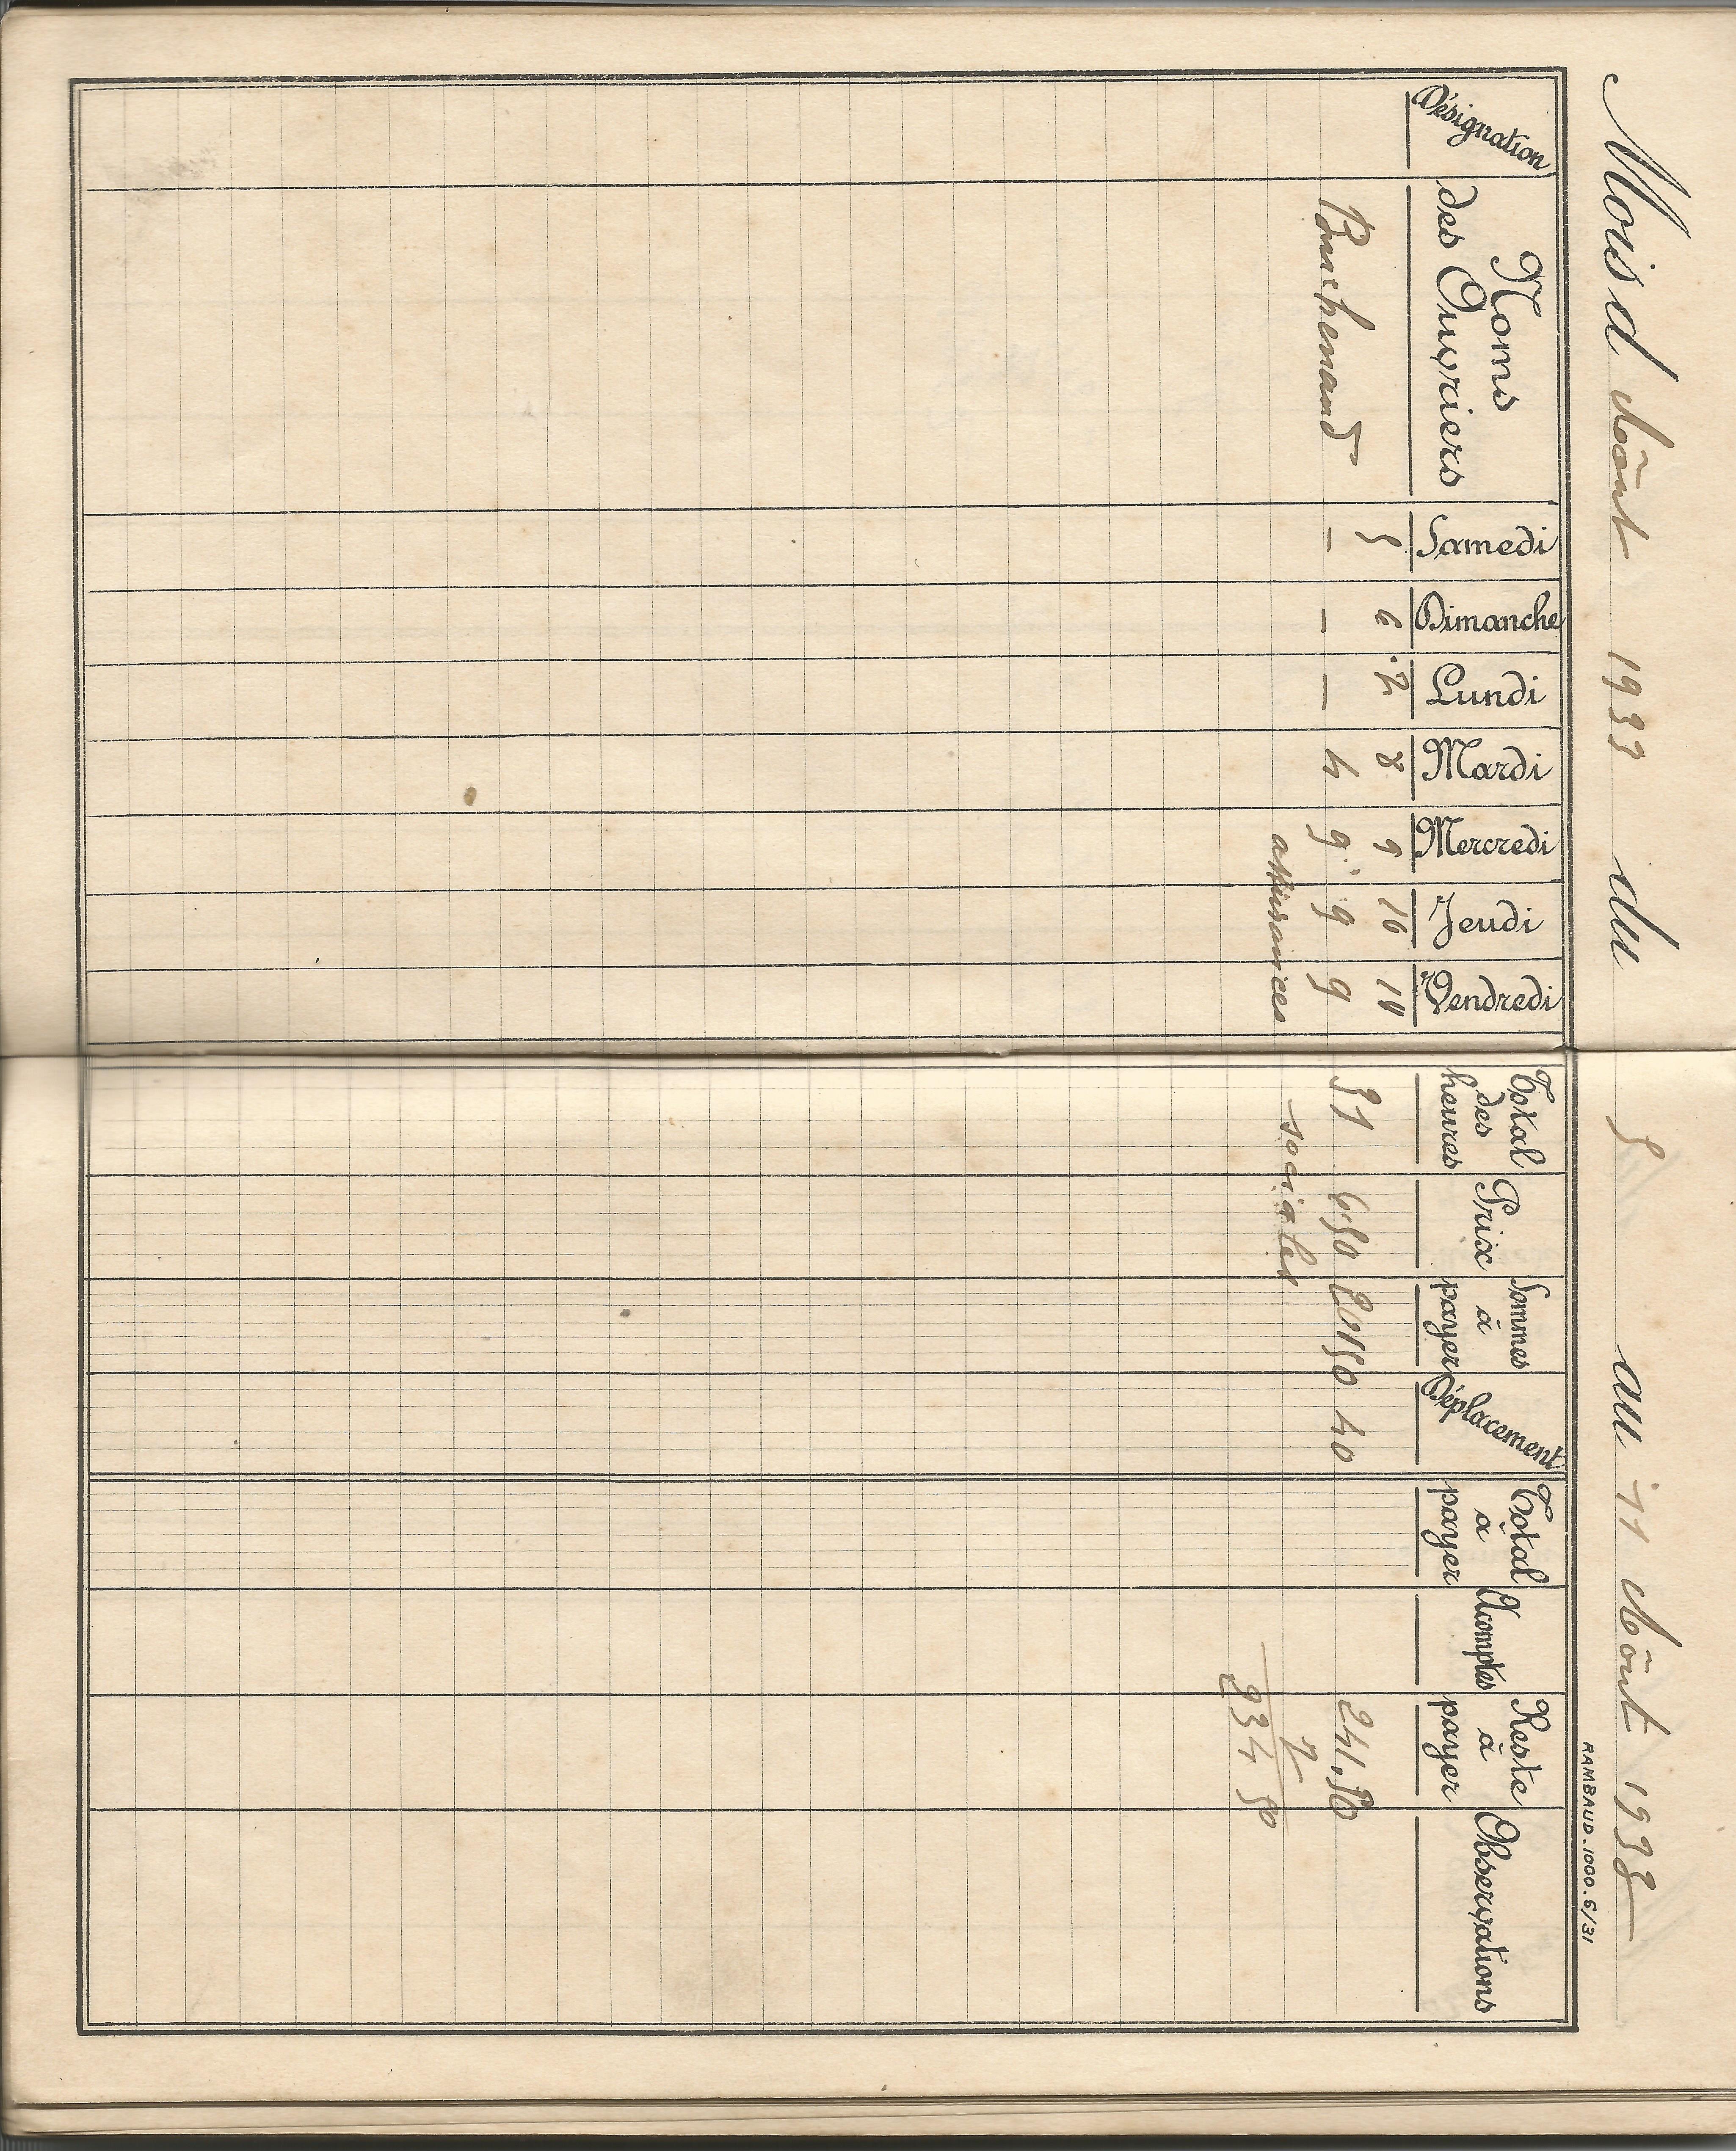 Mois d'Août 1933 du 5 au 11 Août 1933
RAMBAUD. 1000. 5/31
Désignation Noms des Ouvriers Samedi Dimanche Lundi Mardi Mercredi Jeudi Vendredi Total des heures Prix Sommes à payer Déplacement Total à payer Acomptes Reste à payer Observations
5 6 7 8 9 10 11
— — — 4 9 9 9 31 6.50 201.50 40 241.50
assurances sociales 7
234 50